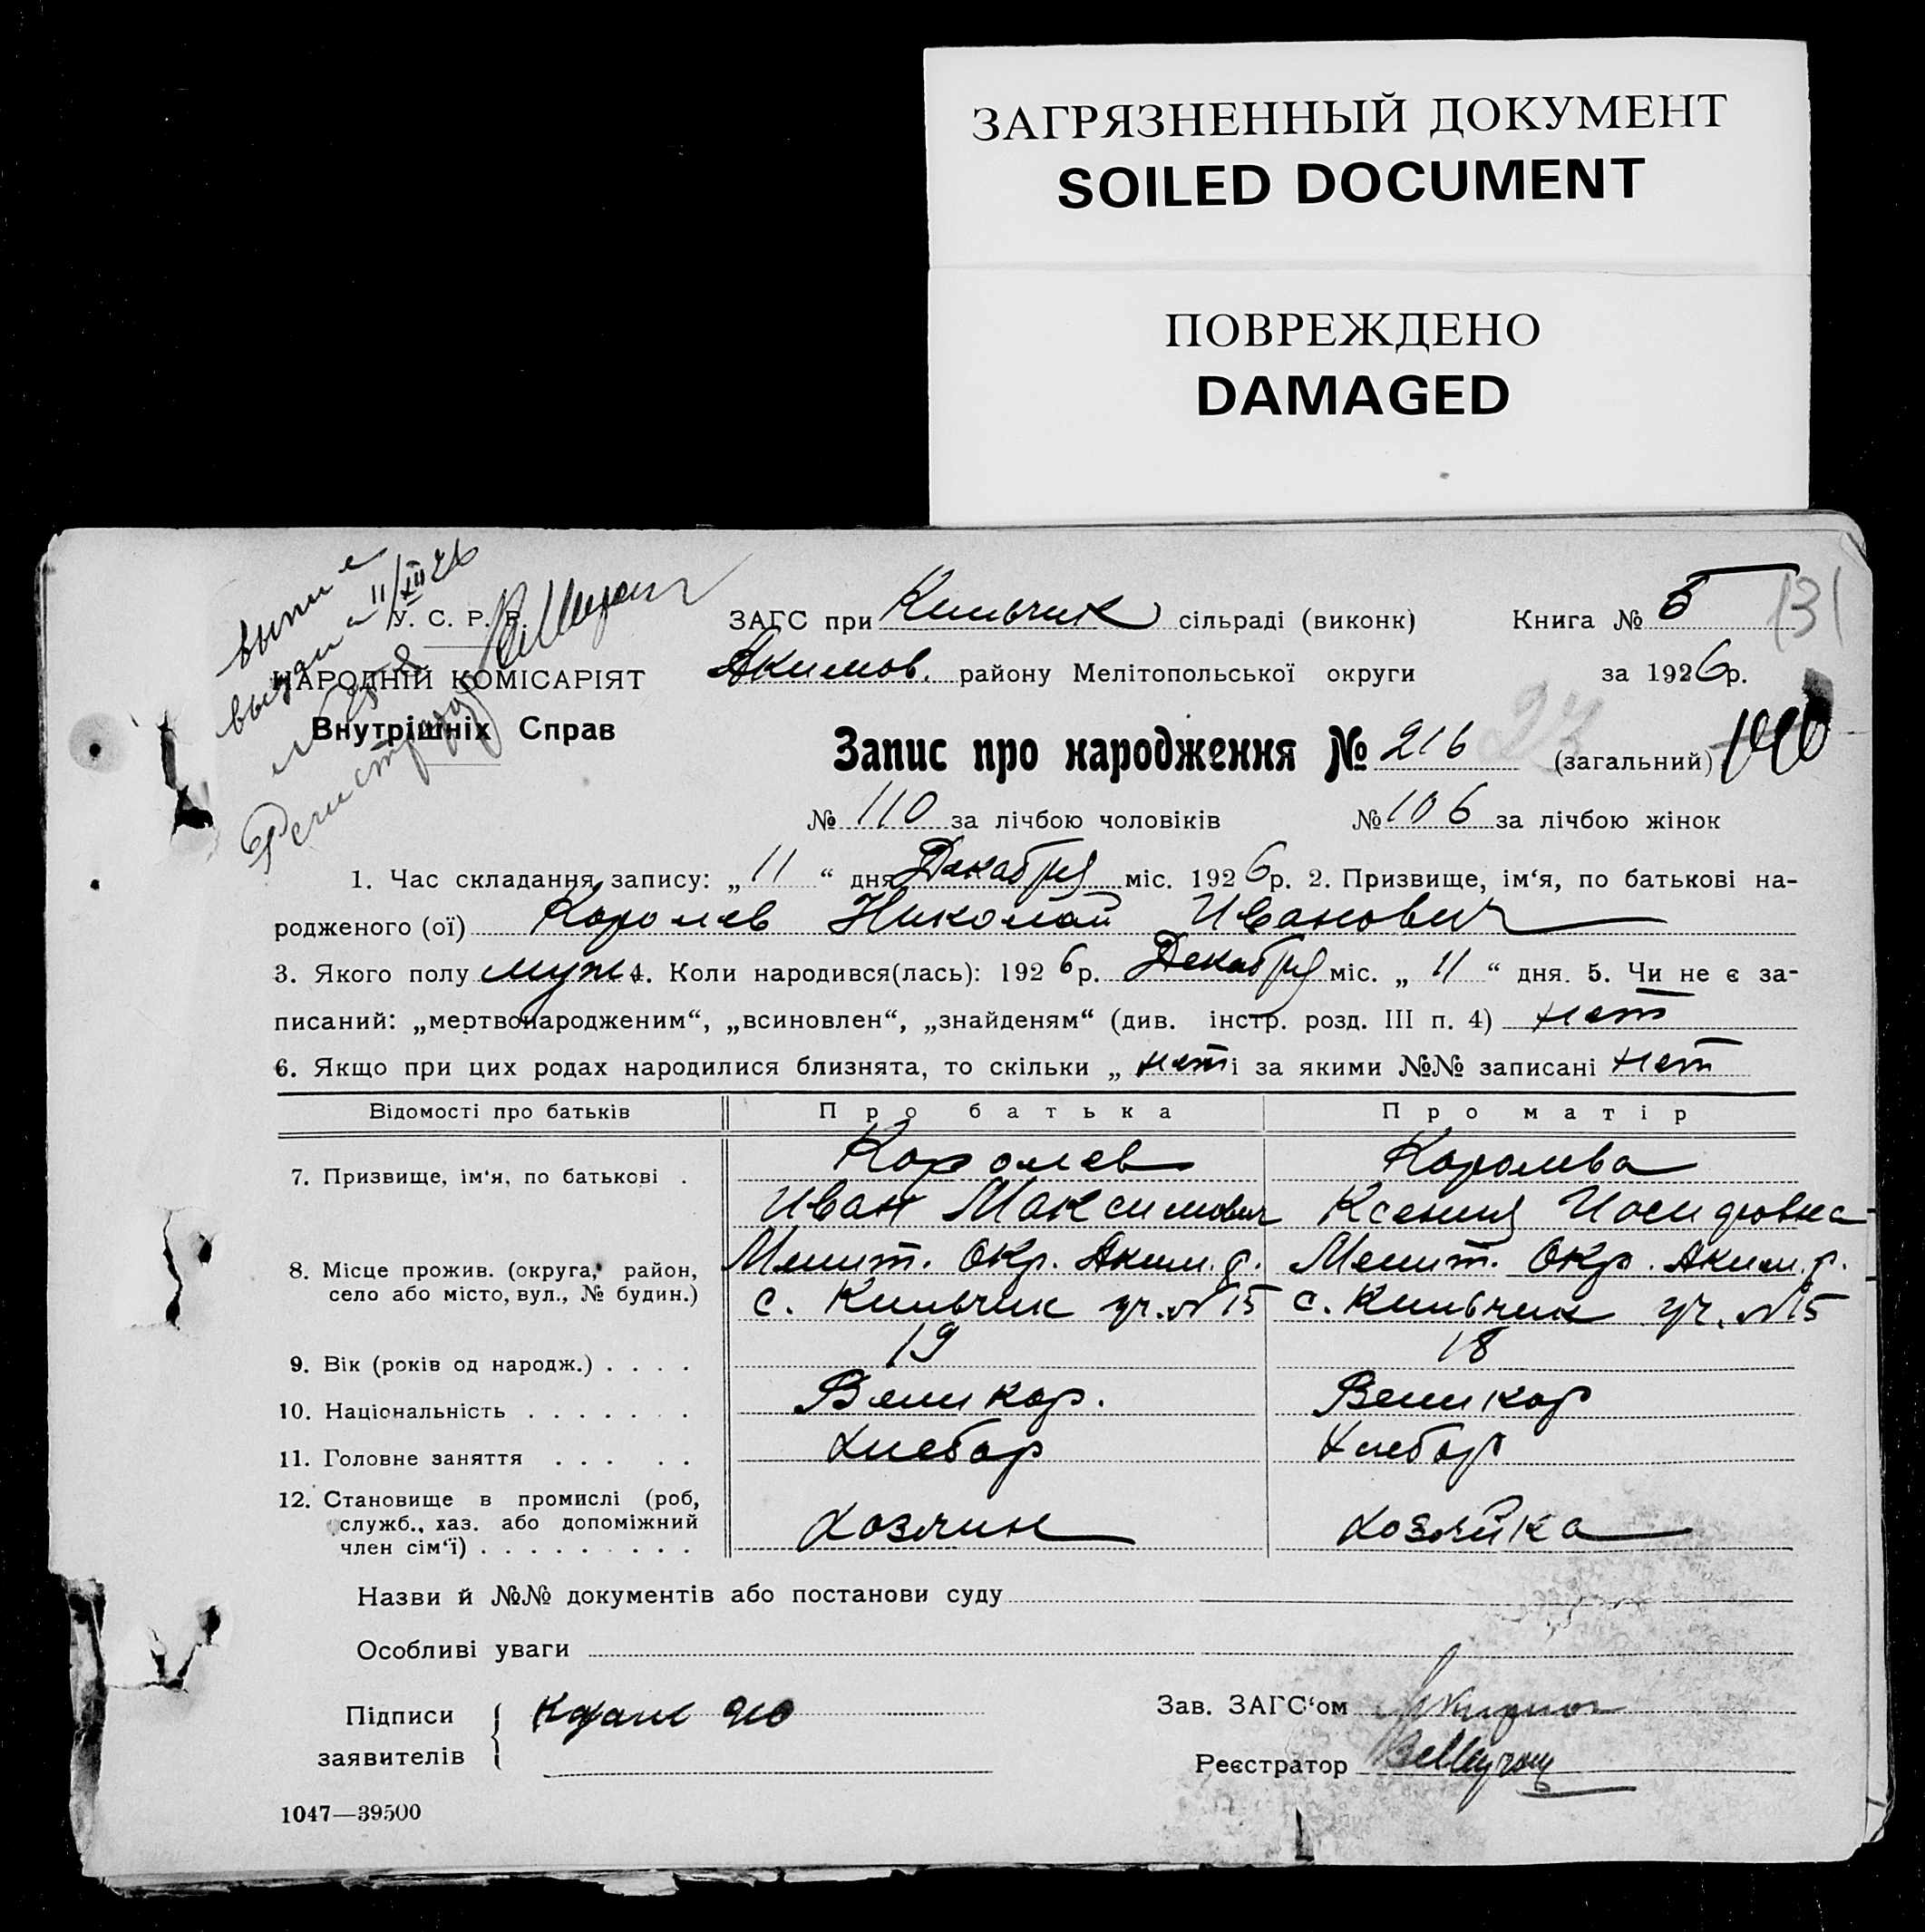 ЗАГРЯЗНЕННЫЙ ДОКУМЕНТ
SOILED DOCUMENT
ПОВРЕЖДЕНО
DAMAGED
выпис
выдан 11/XII 26
У. С. Р. Р.
НАРОДНІЙ КОМІСАРІЯТ
Внутрішніх Справ
ЗАГС при Кильчик сільраді (виконк) Книга № 5 131
Акимов. району Мелітопольської округи за 1926р.
Запис про народження № 216 27 (загальний)
№ 110 за лічбою чоловіків № 106 за лічбою жінок
1. Час складання запису: „ 11 “ дня Декабря міс. 1926р. 2. Призвище, ім‘я, по батькові на-
родженого (ої) Королев Николай Иванович
3. Якого полу муж 4. Коли народився(лась): 1926р. Декабря міс. „ 11 “ дня. 5. Чи не є за-
писаний: „мертвонародженим“, „всиновлен“, „знайденям“ (див. інстр. розд. III п. 4) нет
6. Якщо при цих родах народилися близнята, то скільки „ нет і за якими №№ записані нет
Відомості про батьків Про батька Про матір
7. Призвище, ім‘я, по батькові . Королев Королева
Иван Максимович Ксения Иосидовна
8. Місце прожив. (округа, район, Мелит. Окр. Аким. р. Мелит. Окр. Аким. р.
село або місто, вул., № будин.) с. Кильчик уч. №15 с. Кильчик уч. №15
9. Вік (років од народж.) . . . . 19 18
10. Національність . . . . . . . Великор. Великор
11. Головне заняття . . . . . Хлебор Хлебор
12. Становище в промислі (роб,
служб., хаз. або допоміжний Хозяин Хозяйка
член сім‘ї) . . . . . . . . .
Назви й №№ документів або постанови суду
Особливі уваги
Підписи
заявителів
Зав. ЗАГС‘ом
Реєстратор
1047—39500